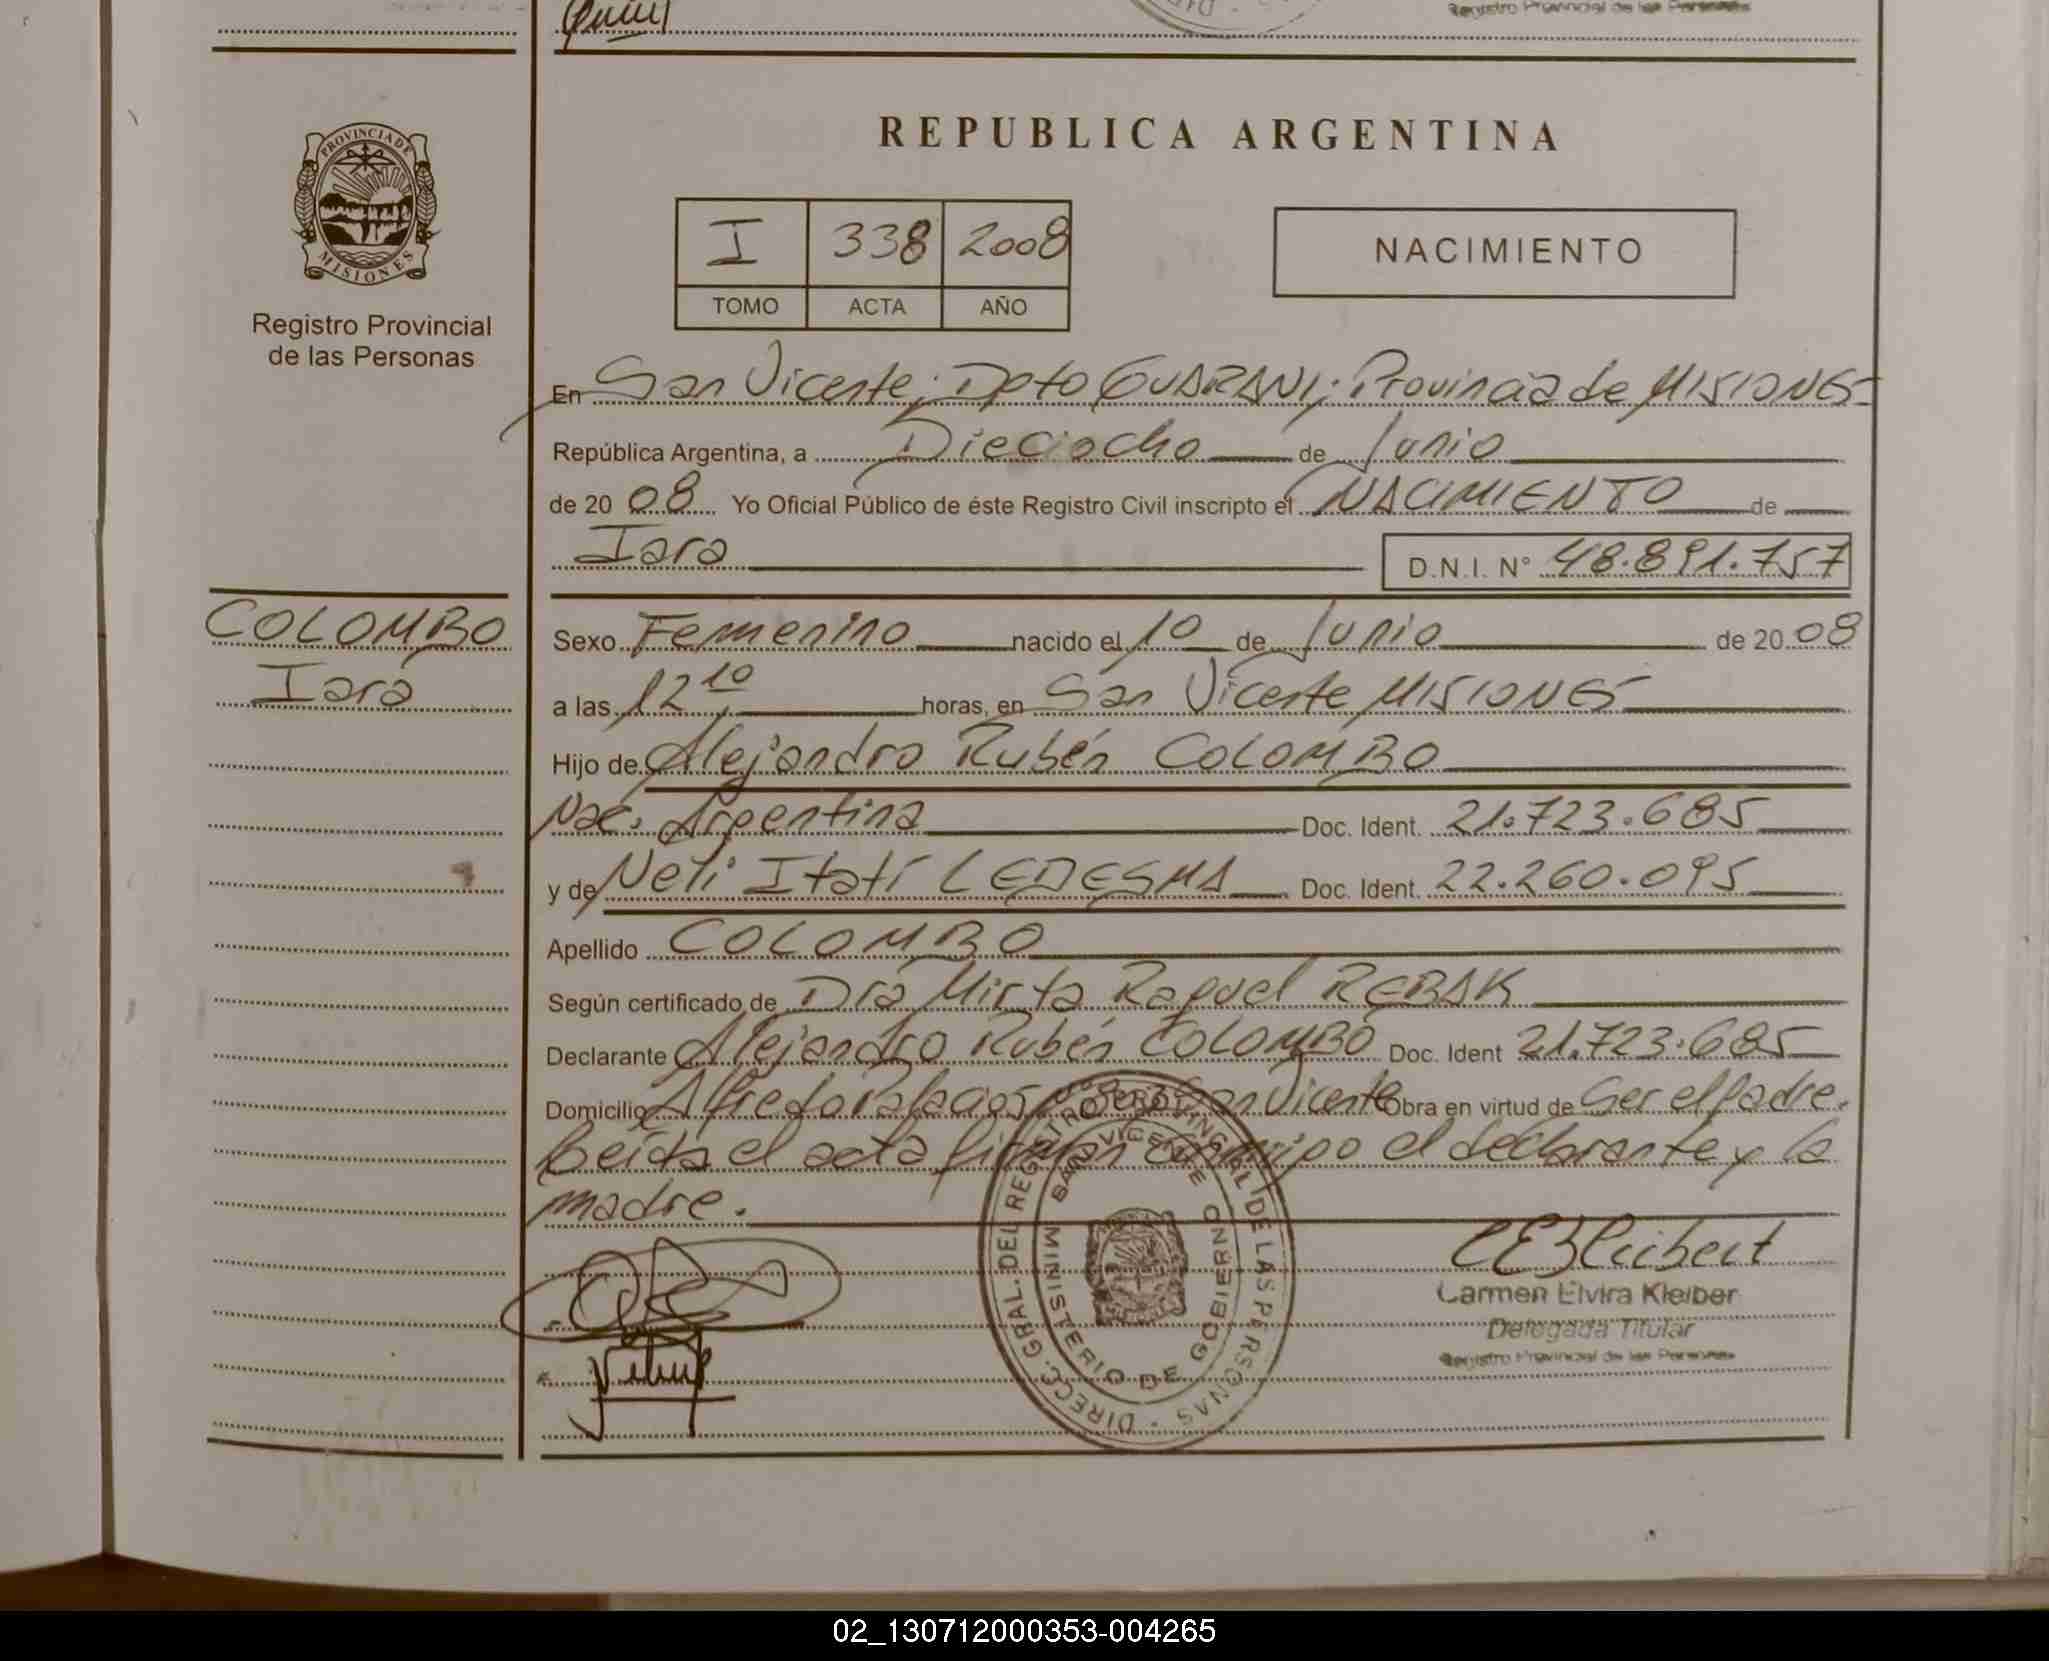 Registro Provincial de las Personas
REPUBLICA ARGENTINA
PROVINCIA DE
MISIONES
Registro Provincial
de las Personas
I 338 2008
TOMO ACTA AÑO
NACIMIENTO
En San Vicente; Dpto GUARANI; Provincia de MISIONES
República Argentina, a Dieciocho de Junio
de 20 08 Yo Oficial Público de éste Registro Civil inscripto el NACIMIENTO de
Iara D.N.I. N° 48.891.757
COLOMBO
Iara
Sexo Femenino nacido el 10 de Junio de 20 08
a las 12 10 horas, en San Vicente MISIONES
Hijo de Alejandro Rubén COLOMBO
Nac. Argentina Doc. Ident. 21.723.685
y de Neli Itatí LEDESMA Doc. Ident. 22.260.095
Apellido COLOMBO
Según certificado de Dra Mirta Raquel REBAK
Declarante Alejandro Rubén COLOMBO Doc. Ident 21.723.685
Domicilio Alfredo Palacios San Vicente Obra en virtud de Ser el Padre.
Leída el acta firman conmigo el declarante y la
madre.
DIRECC. GRAL. DEL REGISTRO PROVINCIAL DE LAS PERSONAS
SAN VICENTE
MINISTERIO DE GOBIERNO
Carmen Elvira Kleiber
Delegada Titular
Registro Provincial de las Personas
02_130712000353-004265